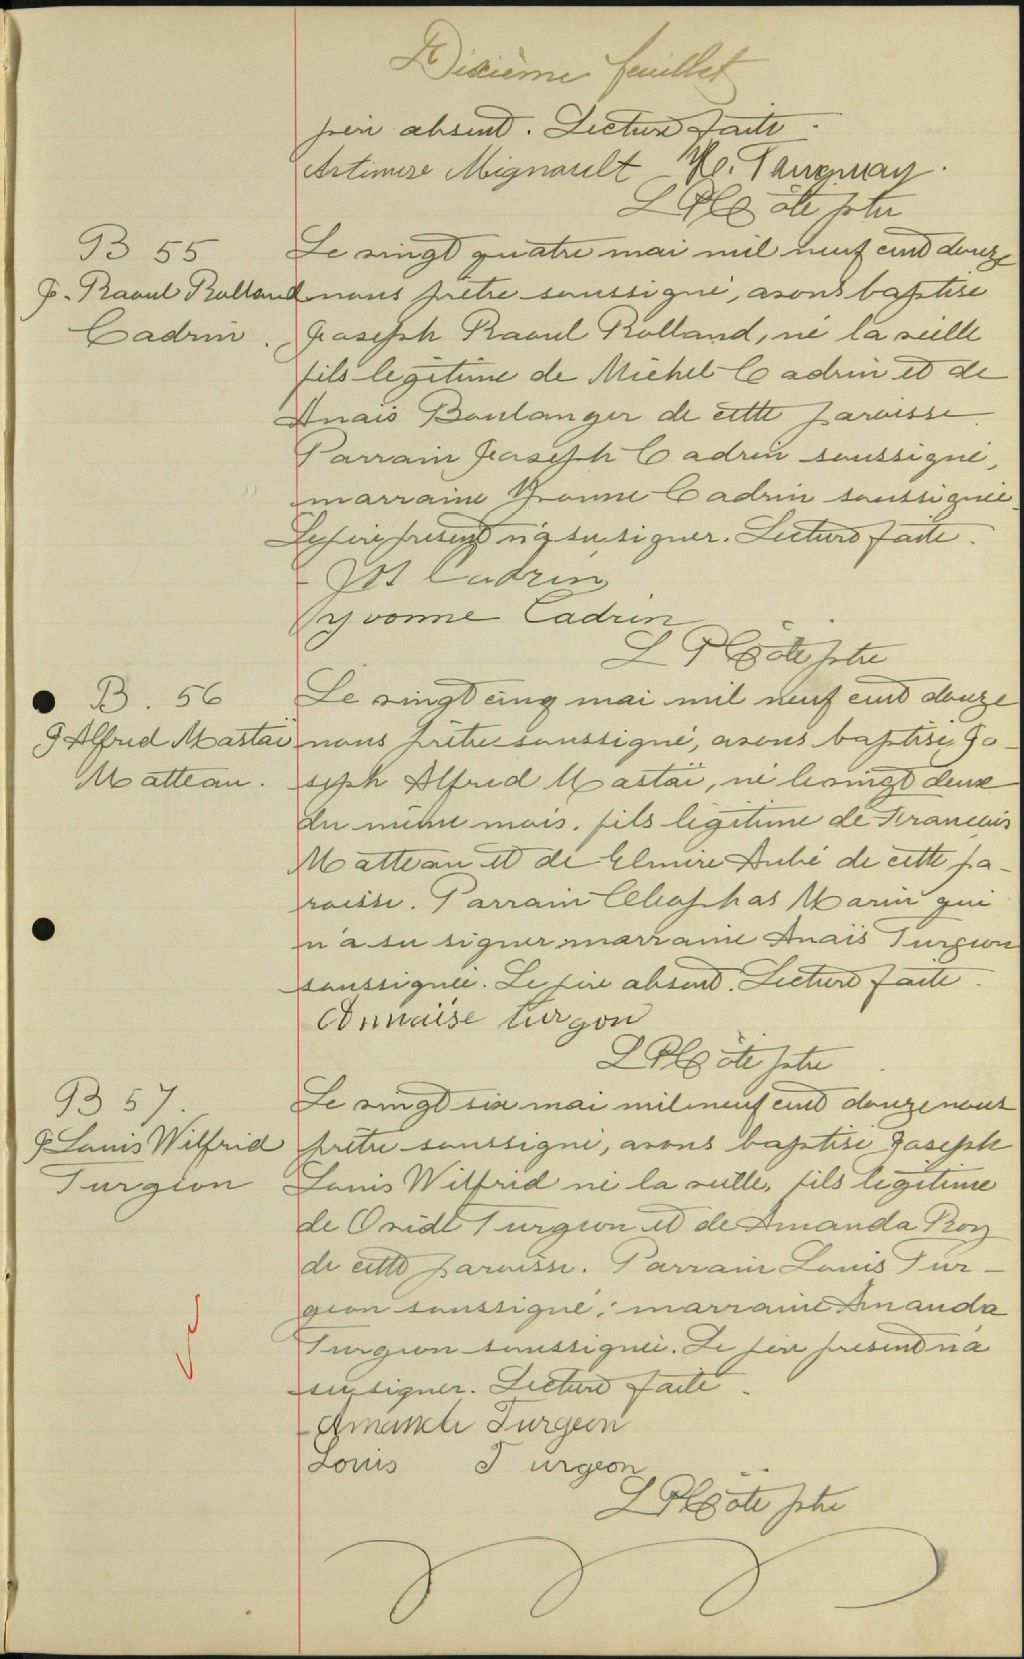 Dixième feuillet
père absent. Lecture faite.
Artimise Mignault H. Tanguay.
L P Côté ptre
B 55
J. Raoul Rolland
Cadrin.
Le vingt quatre mai mil neuf cent douze
nous prêtre soussigné, avons baptisé
Joseph Raoul Rolland, né la veille
fils légitime de Michel Cadrin et de
Anaïs Boulanger de cette paroisse
Parrain Joseph Cadrin soussigné,
marraine Yvonne Cadrin soussignée.
Le père présent n'a su signer. Lecture faite.
Jos Cadrin
Yvonne Cadrin
L P Côté ptre
B. 56
J Alfred Mastaï
Matteau.
Le vingt cinq mai mil neuf cent douze
nous prêtre soussigné, avons baptisé Jo-
seph Alfred Mastaï, né le vingt deux
du même mois. fils légitime de François
Matteau et de Elmire Aubé de cette pa-
roisse. Parrain Cléophas Marin qui
n'a su signer marraine Anaïs Turgeon
soussignée. Le père absent. Lecture faite.
Annaïse turgon
L P Côté ptre
B 57.
J Louis Wilfrid
Turgeon
Le vingt six mai mil neuf cent douze nous
prêtre soussigné, avons baptisé Joseph
Louis Wilfrid né la veille, fils légitime
de Ovide Turgeon et de Amanda Roy
de cette paroisse. Parrain Louis Tur-
geon soussigné; marraine Amanda
Turgeon soussignée. Le père présent n'a
su signer. Lecture faite.
Amanda Turgeon
Louis Turgeon
L P Côté ptre